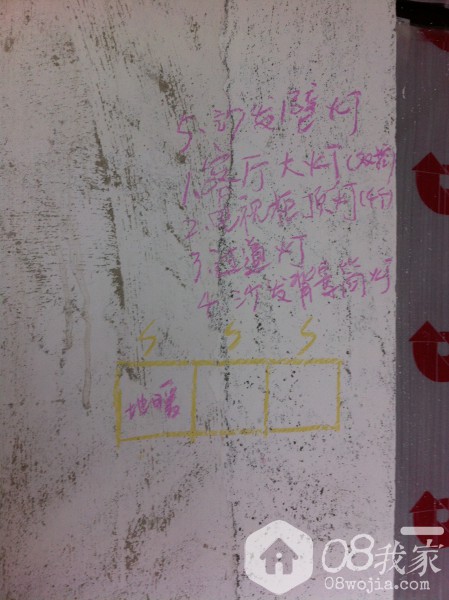 5、沙发壁灯
1、客厅大灯(双控)
2、电视柜顶灯(4个)
3、过道灯
4、沙发背景筒灯
S S S
地暖
08我家
08wojia.com